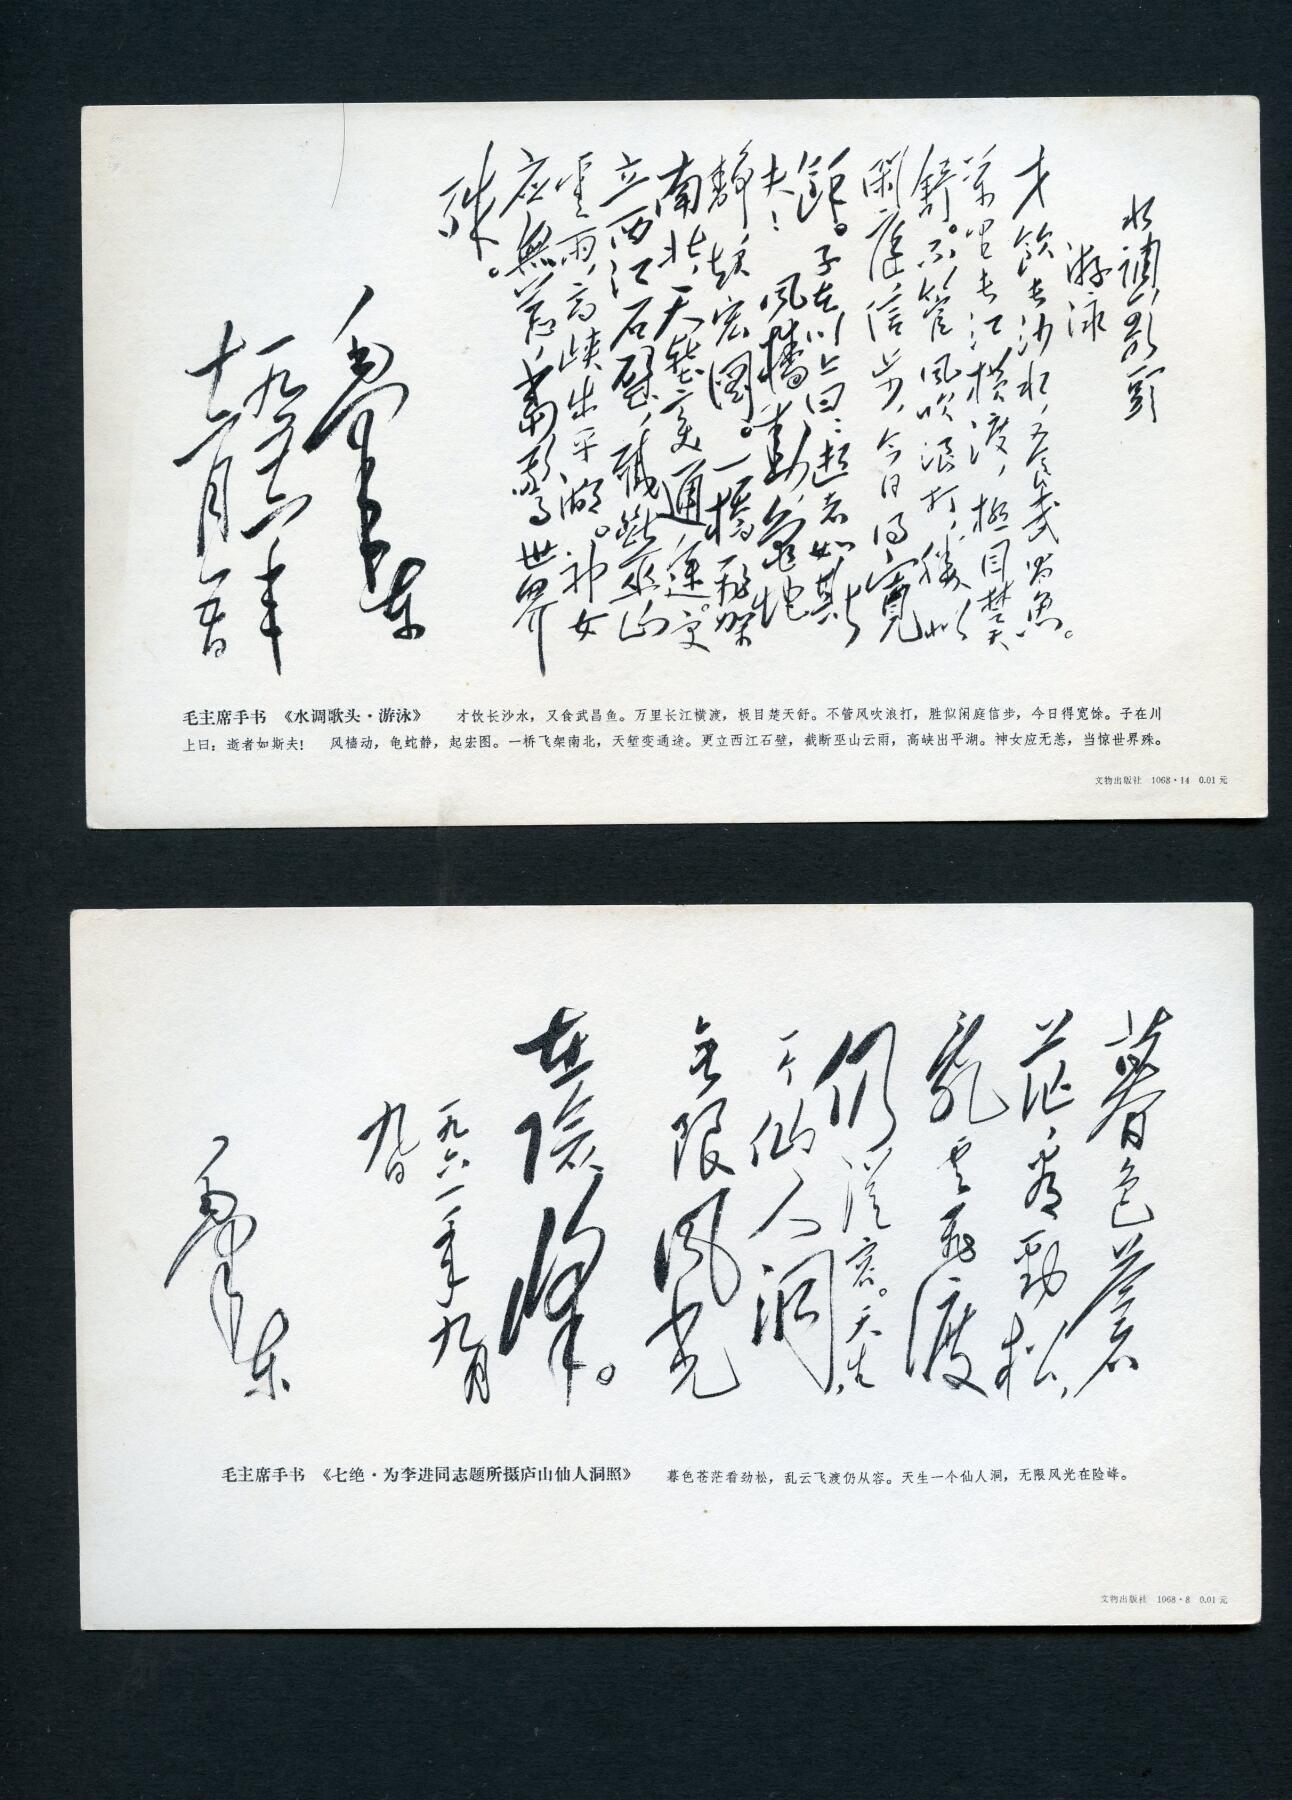 水调歌頭
游泳
才飲长沙水，又食武昌魚。
萬里长江横渡，極目楚天
舒。不管風吹浪打，勝似
閑庭信步，今日得寬
餘。子在川上曰：逝者如斯
夫！ 風檣動，龜蛇
静，起宏圖。一橋飛架
南北，天塹变通途。更
立西江石壁，截断巫山
雲雨，高峡出平湖。神女
应無恙，当驚世界
殊。
毛泽东
一九五六年
十二月五日
毛主席手书 《水调歌头·游泳》 才饮长沙水，又食武昌鱼。万里长江横渡，极目楚天舒。不管风吹浪打，胜似闲庭信步，今日得宽馀。子在川
上曰：逝者如斯夫！ 风樯动，龟蛇静，起宏图。一桥飞架南北，天堑变通途。更立西江石壁，截断巫山云雨，高峡出平湖。神女应无恙，当惊世界殊。
文物出版社 1068·14 0.01元
暮色苍
茫看勁松，
乱云飛渡
仍從容。天生
一个仙人洞，
无限風光
在险峰。
一九六一年九月
九日
毛泽东
毛主席手书 《七绝·为李进同志题所摄庐山仙人洞照》 暮色苍茫看劲松，乱云飞渡仍从容。天生一个仙人洞，无限风光在险峰。
文物出版社 1068·8 0.01元